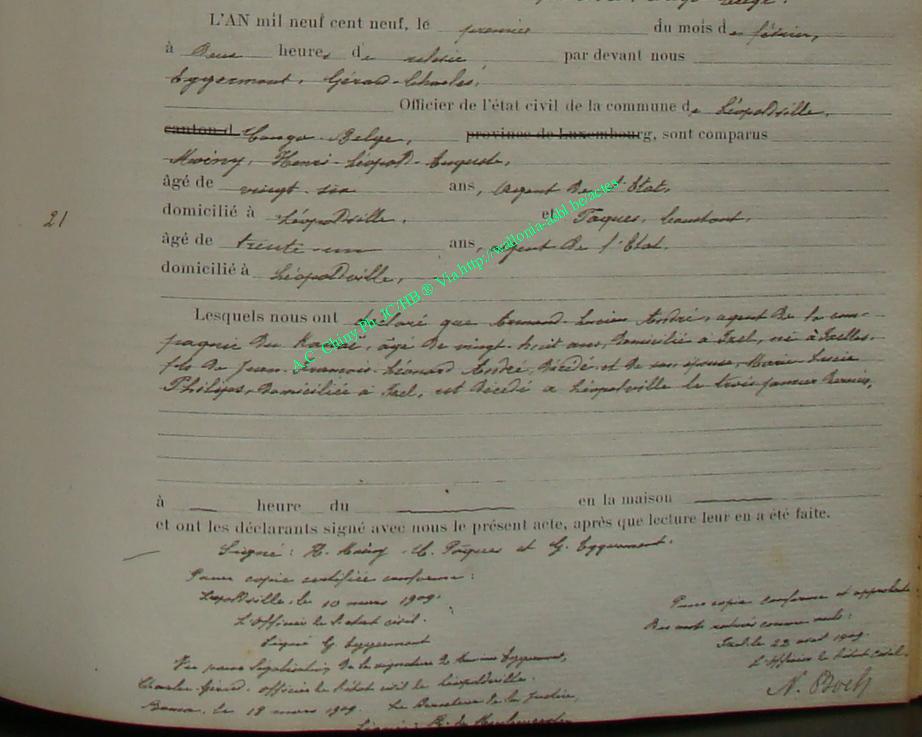 L'AN mil neuf cent neuf, le premier du mois de février,
à deux heures de relevée, par devant nous
Eggermont, Gérard-Charles,
Officier de l'état civil de la commune de Léopoldville,
canton d Congo-Belge, province de Luxembourg, sont comparus
Henri-Léopold-Auguste,
âgé de vingt-six ans, agent de l'Etat,
domicilié à Léopoldville, et Paques, Constant,
21
âgé de trente-un ans, agent de l'Etat
domicilié à Léopoldville,
Lesquels nous ont déclaré que Armand-Lucien André, agent de la com-
pagnie du Kasaï, âgé de vingt-huit ans, domicilié à Izel, né à Ixelles,
fils de Jean-François-Léonard André, décédé et de son épouse, Marie Lucie
Philips, domiciliée à Izel, est décédé à Léopoldville le trois janvier dernier,
à heure du en la maison
et ont les déclarants signé avec nous le présent acte, après que lecture leur en a été faite.
Signé : H. C. Paques et G. Eggermont.
Pour copie certifiée conforme :
Léopoldville, le 10 mars 1909.
L'Officier de l'état civil.
Signé G. Eggermont
Vu pour légalisation de la signature de Eggermont,
Charles-Gérard, officier de l'état civil de Léopoldville.
Boma, le 18 mars 1909. Le Directeur de la Justice,
Signé :
Pour copie conforme et approbation
des mots rayés comme nuls :
Izel, le 22 avril 1909.
L'Officier de l'état civil,
N. Bock
A.C. Chiny Ph. JC/HB ® Via http://wallonia-asbl.be/actes